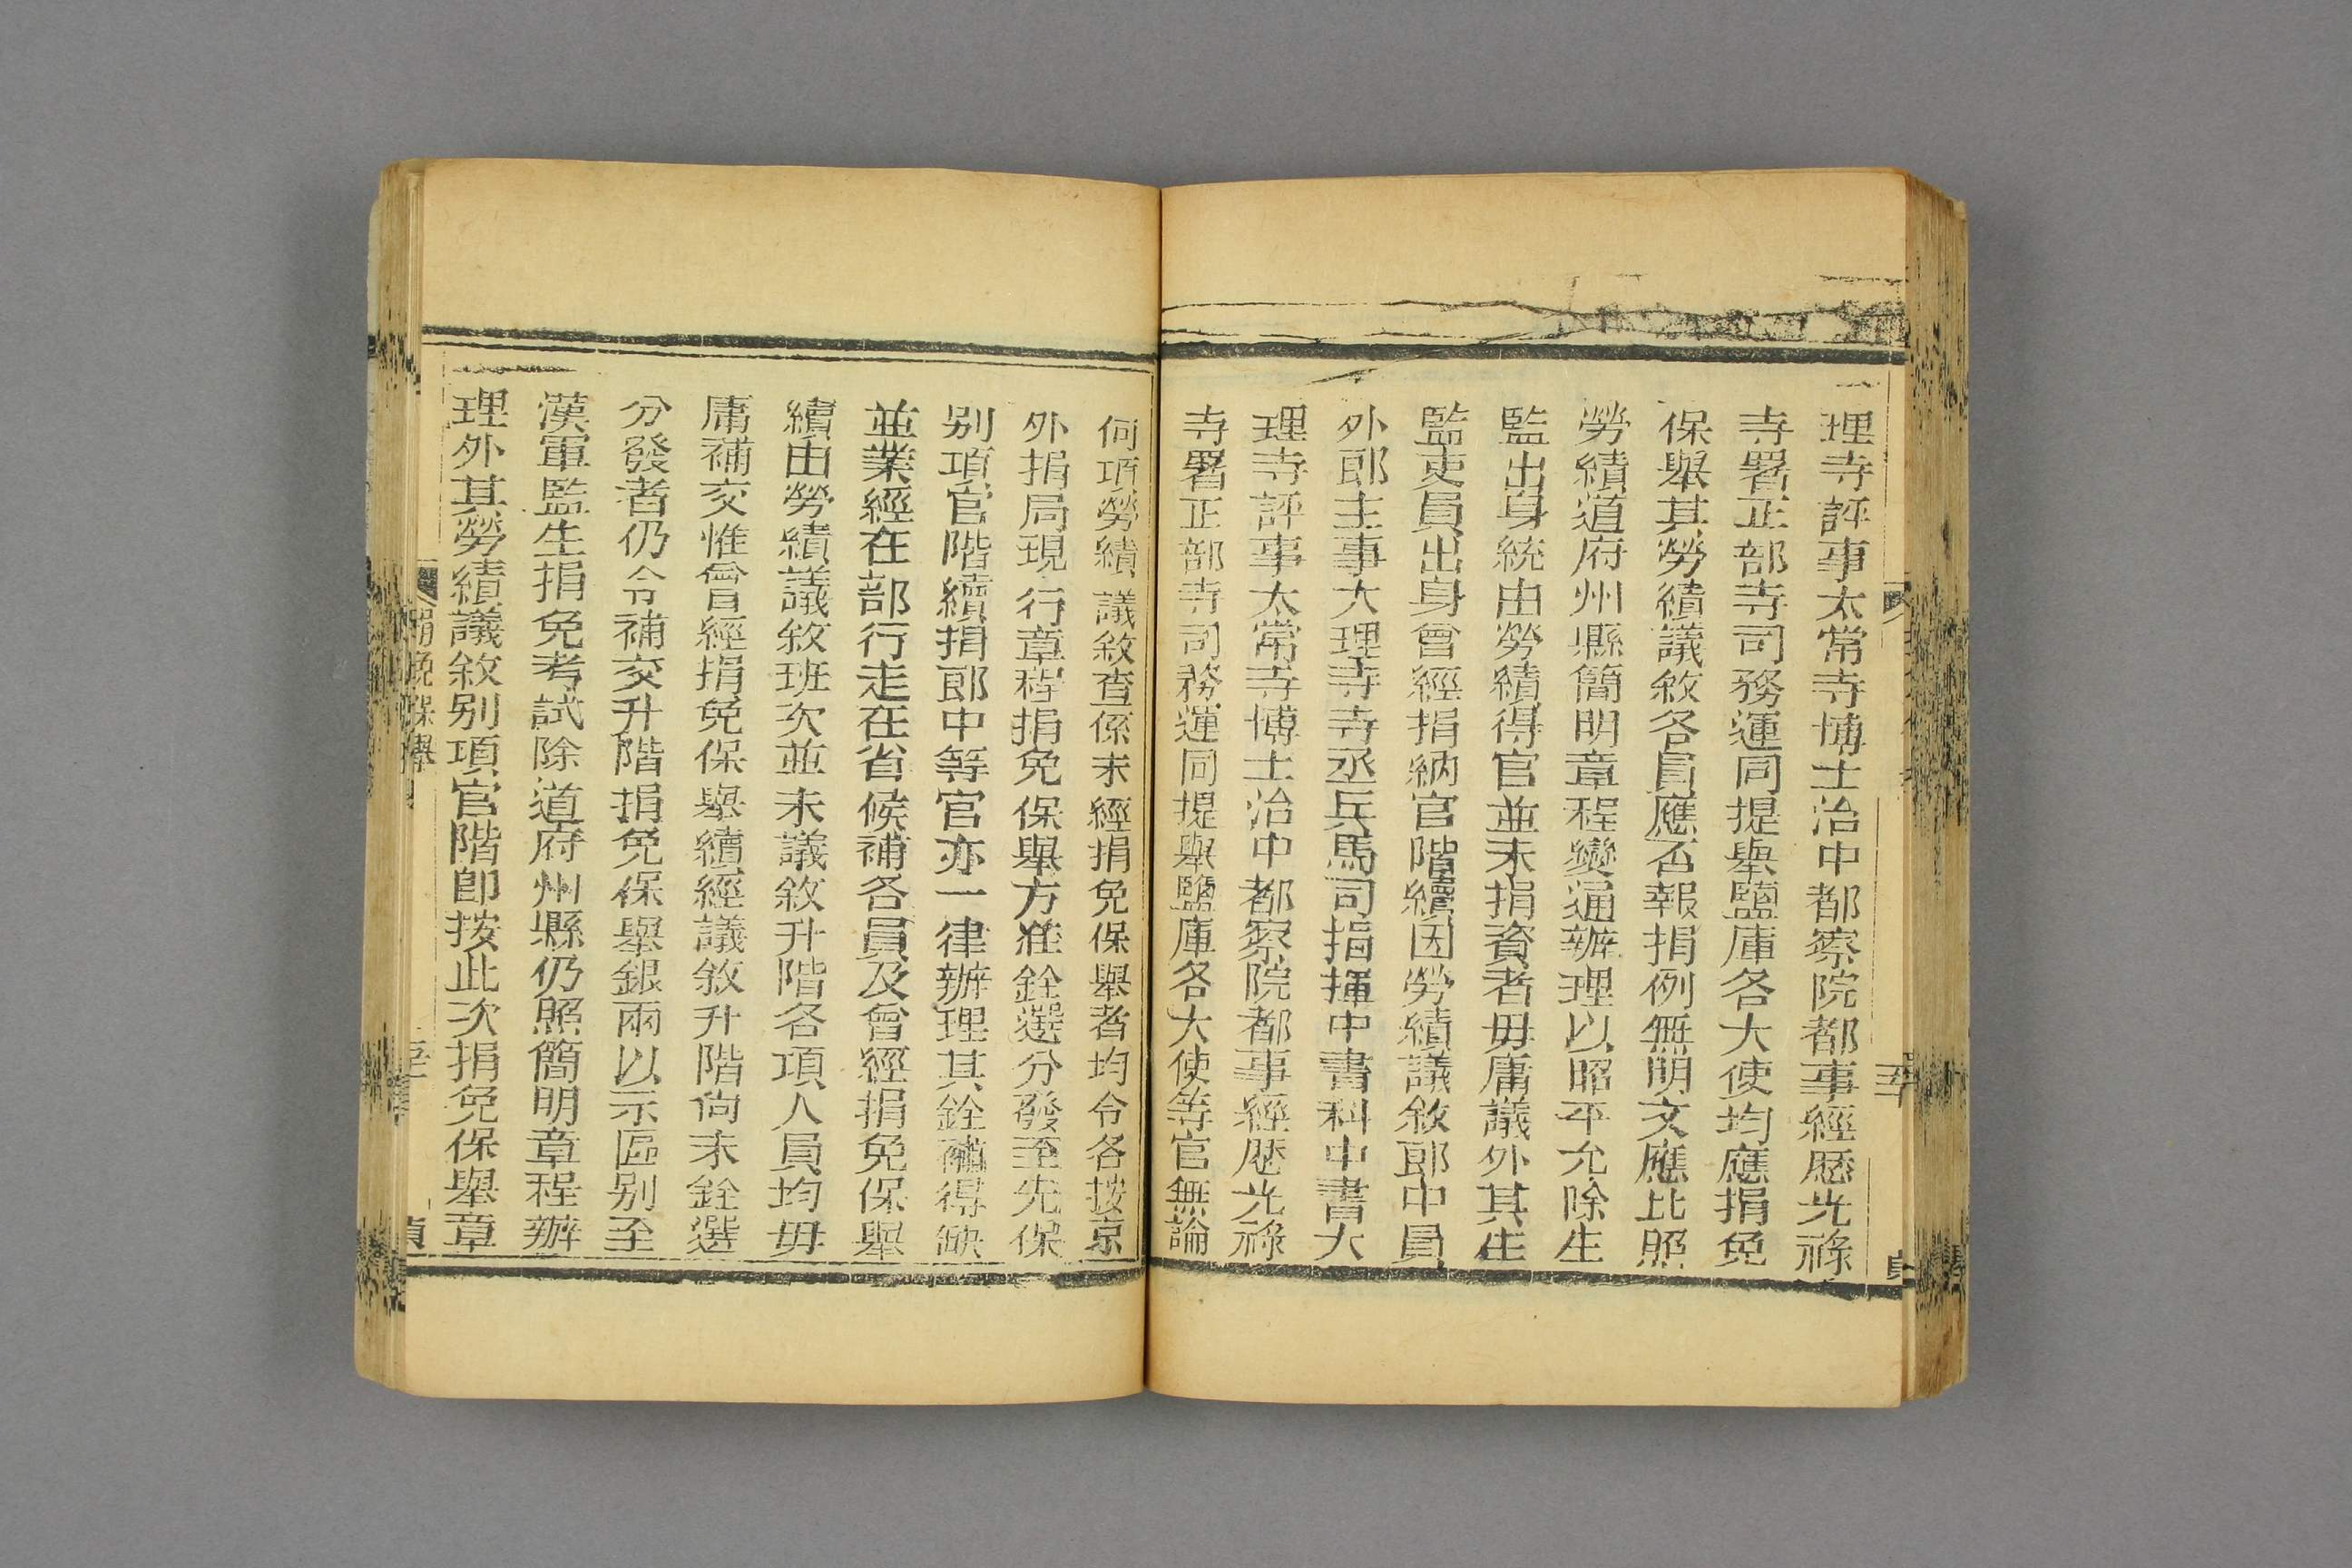 理寺評事太常寺博士治中都察院都事經歷光祿
寺署正部寺司務運同提舉鹽庫各大使均應捐免
保舉其勞績議敘各員應否報捐例無明文應比照
勞績道府州縣簡明章程變通辦理以昭平允除生
監出身統由勞績得官並未捐資者毋庸議外其生
監吏員出身曾經捐納官階續因勞績議敘郎中員
外郎主事大理寺寺丞兵馬司指揮中書科中書大
理寺評事太常寺博士治中都察院都事經歷光祿
寺署正部寺司務運同提舉鹽庫各大使等官無論
何項勞績議敘查係未經捐免保舉者均令各按京
外捐局現行章程捐免保舉方准銓選分發至先保
别項官階續捐郎中等官亦一律辦理其銓補得缺
並業經在部行走在省候補各員及曾經捐免保舉
續由勞績議敘班次並未議敘升階各項人員均毋
庸補交惟曾經捐免保舉續經議敘升階尚未銓選
分發者仍令補交升階捐免保舉銀兩以示區别至
漢軍監生捐免考試除道府州縣仍照簡明章程辦
理外其勞績議敘别項官階卽按此次捐免保舉章
捐免保舉